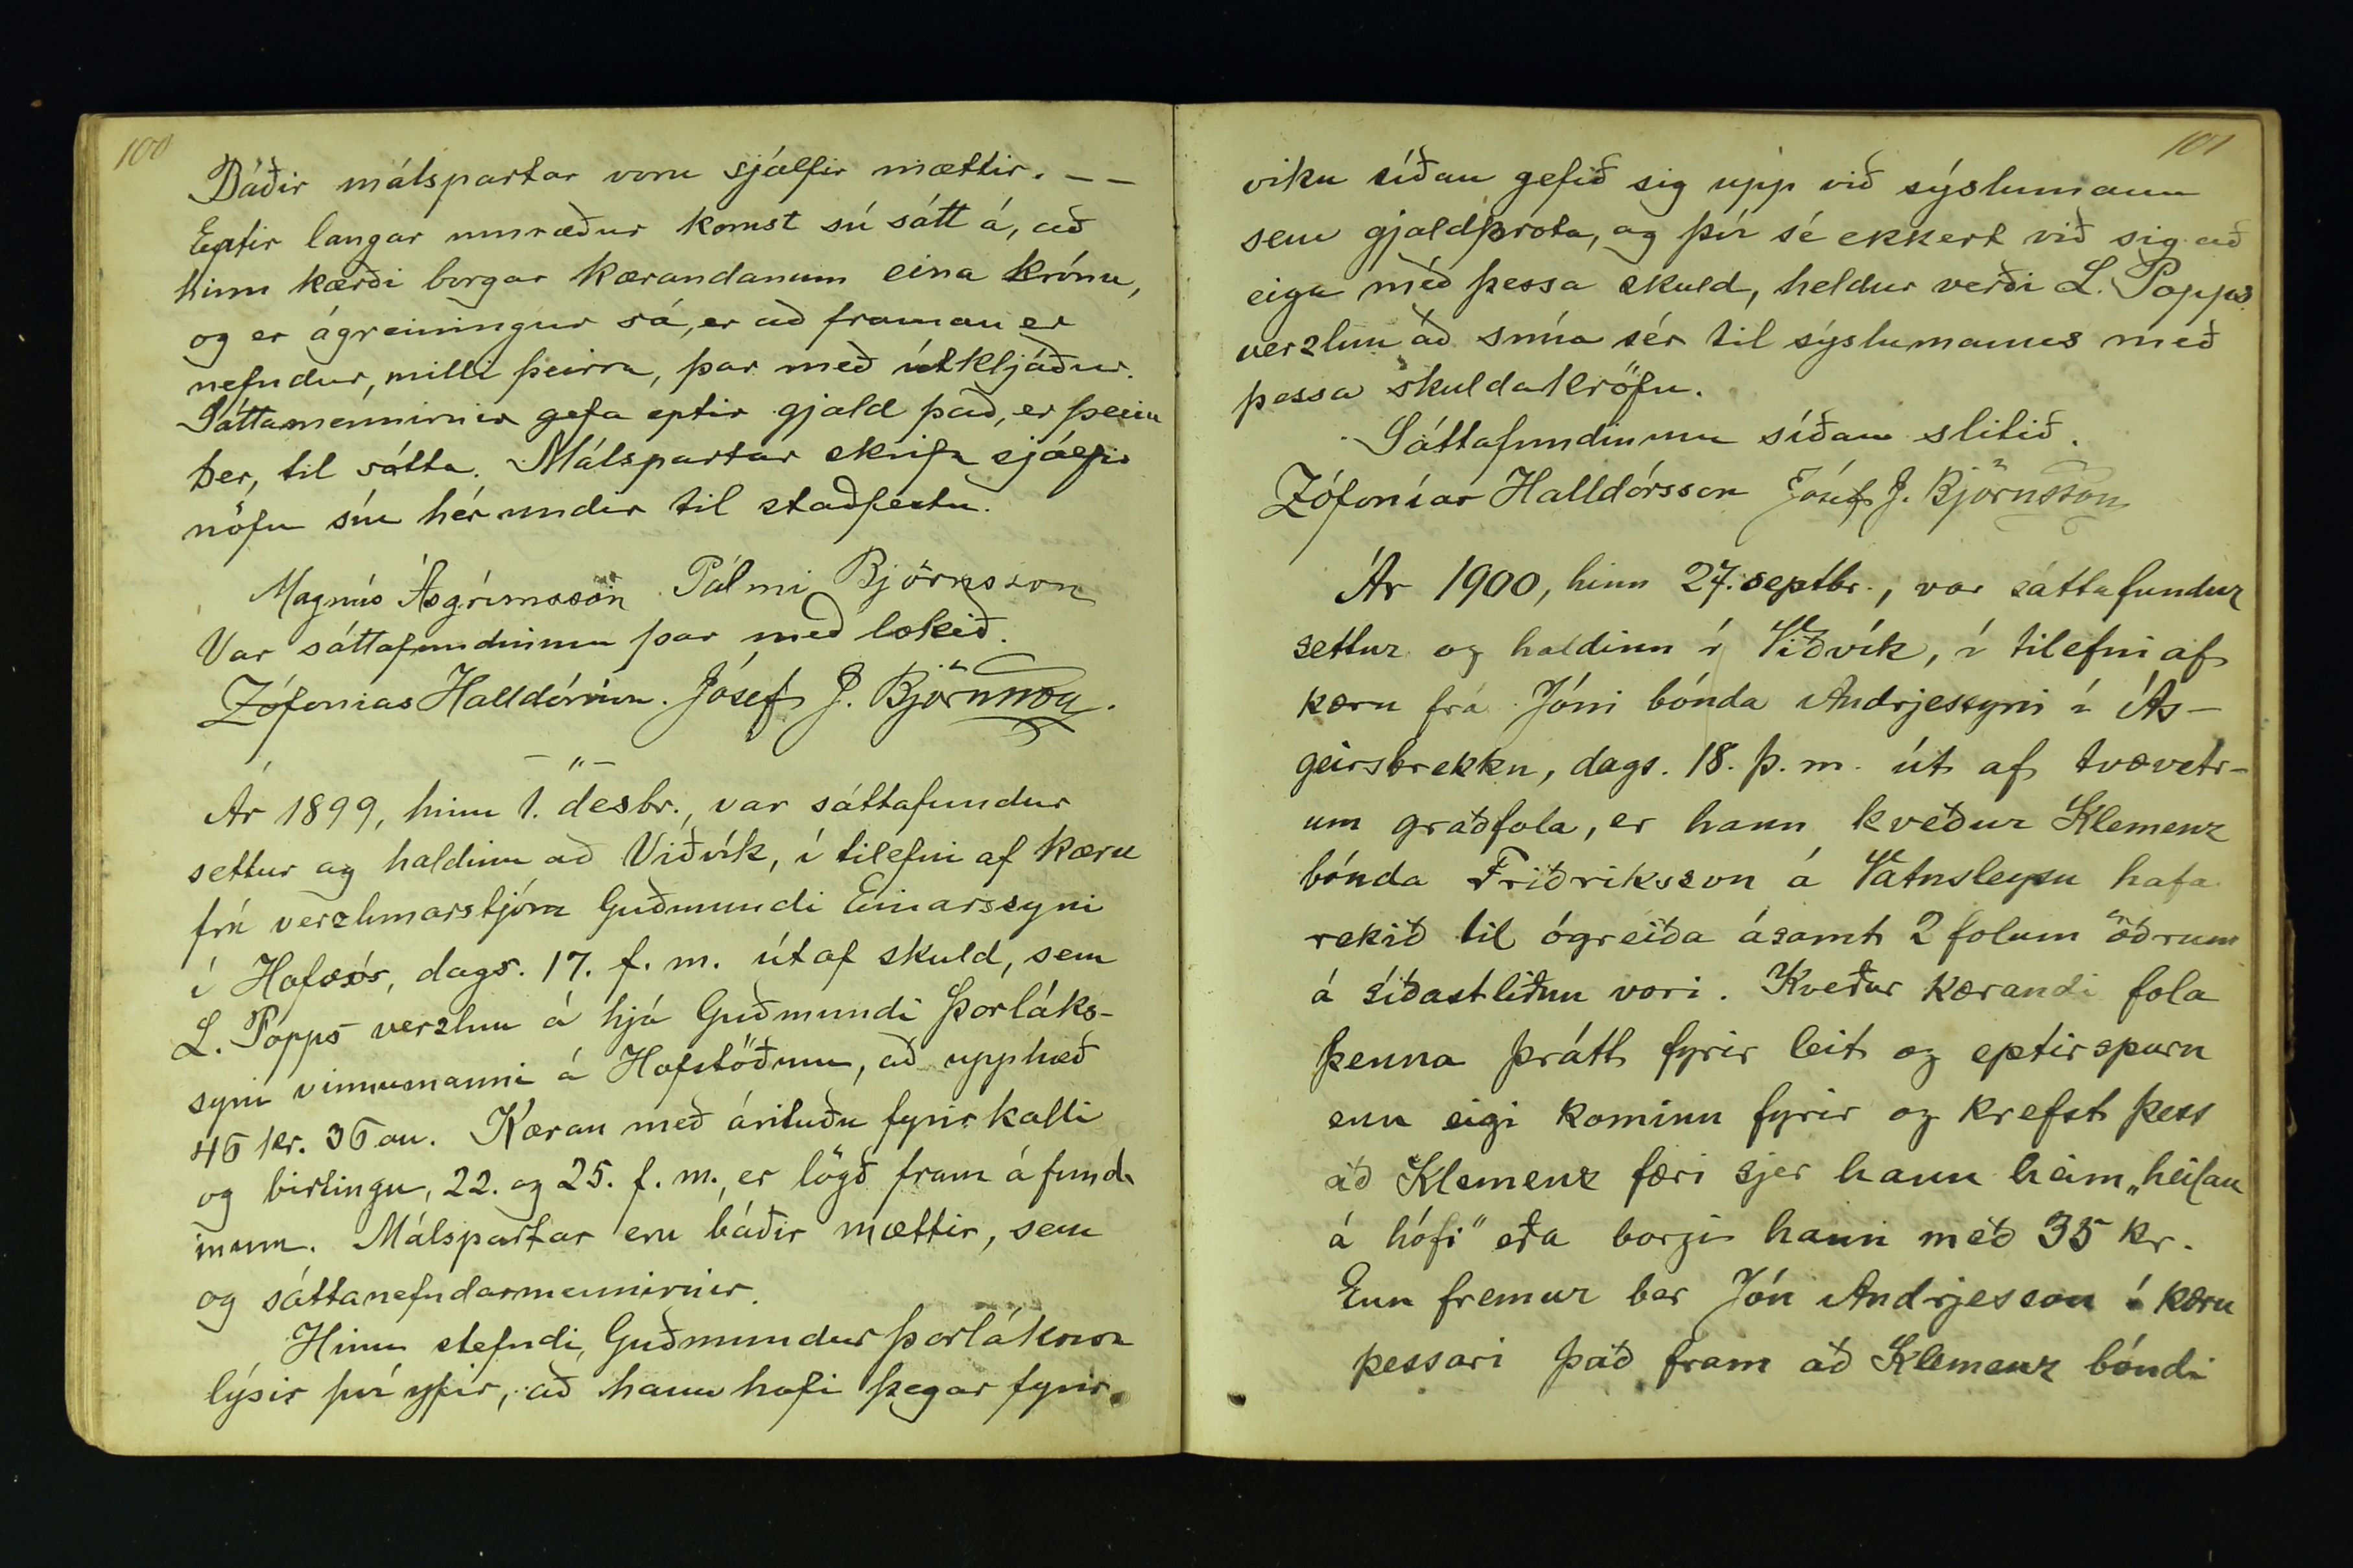 100
Báðir málspartar voru sjálfir mættir. — —
Eptir langar umræður komst sú sátt á, að
hinn kærði borgar kærandanum eina krónu,
og er ágreiningur sá, er að framan er
nefndur, milli þeirra, þar með útkljáður.
Sáttamennirnir gefa eptir gjald það, er þeim
ber, til sátta. Málspartar skrifa sjálfir
nöfn sín hér undir til staðfestu.
Magnús Ásgrímsson Pálmi Björnsson
Var sáttafundinum þar með lokið.
Zófonias Halldórsson. Jósef J. Björnsson.
— „ —
Ár 1899, hinn 1. desbr., var sáttafundur
settur og haldinn að Viðvík, í tilefni af kæru
frá verzlunarstjóra Guðmundi Einarssyni
í Hofsós, dags. 17. f. m. út af skuld, sem
L. Popps verzlun á hjá Guðmundi Þorláks-
syni vinnumanni á Hofstöðum, að upphæð
46 kr. 36 au. Kæran með árituðu fyrirkalli
og birtingu, 22. og 25. f. m., er lögð fram á fund-
inum. Málspartar eru báðir mættir, sem
og sáttanefndarmennirnir.
Hinn stefndi, Guðmundur Þorláksson
lýsir því yfir, að hann hafi þegar fyrir
101
viku síðan gefið sig upp við sýslumann
sem gjaldþrota, og því sé ekkert við sig að
eiga með þessa skuld, heldur verði L. Popps
verzlun að snúa sér til sýslumanns með
þessa skuldakröfu.
Sáttafundinum síðan slitið.
Zófonías Halldórsson Jósef J. Björnsson
Ár 1900, hinn 27. septbr., var sáttafundur
settur og haldinn í Viðvík, í tilefni af
kæru frá Jóni bónda Andrjessyni í Ás-
geirsbrekku, dags. 18. þ. m. út af tvævetr-
um graðfola, er hann kveður Klemenz
bónda Friðriksson á Vatnsleysu hafa
rekið til ógreiða ásamt 2 folum öðrum
á síðastliðnu vori. Kveður kærandi fola
þenna þrátt fyrir leit og eptirspurn
enn eigi kominn fyrir og krefst þess
að Klemenz færi sjer hann heim „heilan
á hófi" eða borgi hann með 35 kr.
Enn fremur ber Jón Andrjesson í kæru
þessari það fram að Klemenz bóndi